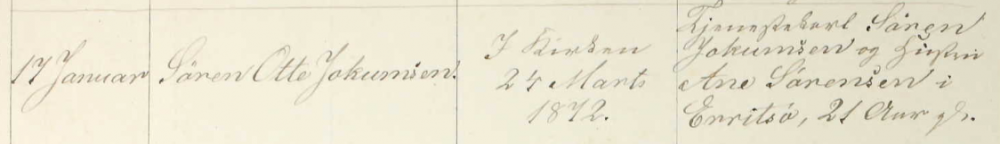 17 Januar
Sören Otte Jokumsen.
I Kirken
24 Marts
1872.
Tjenestekarl Sören
Jokumsen og Hustru
Ane Sörensen i
Erritsö, 21 Aar gl.